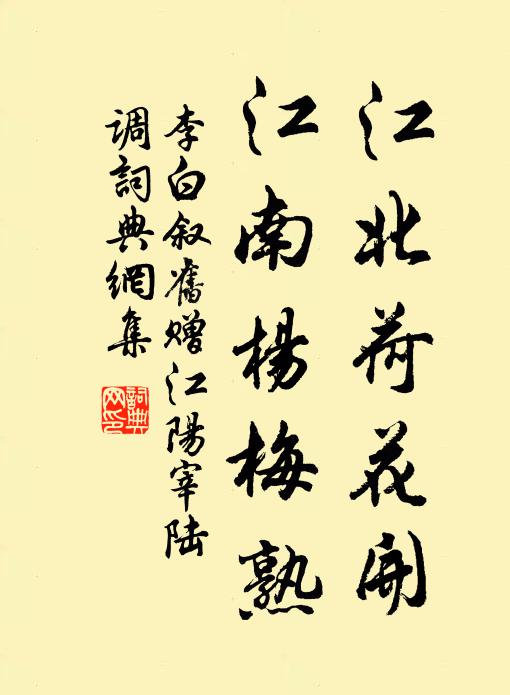 江北荷花开
江南楊梅熟
李白叙舊赠江陽宰陆
调詞典網集
詞典
网印